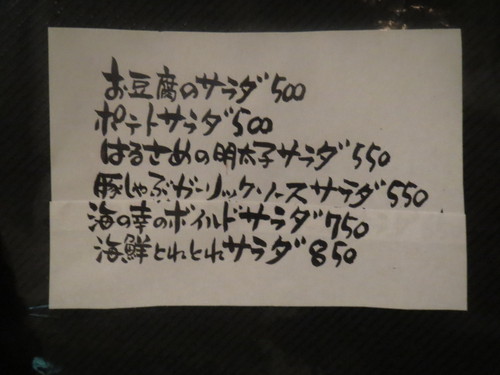 お豆腐のサラダ 500
ポテトサラダ 500
はるさめの明太子サラダ 550
豚しゃぶガーリックソースサラダ 550
海の幸のボイルドサラダ 750
海鮮とれとれサラダ 850